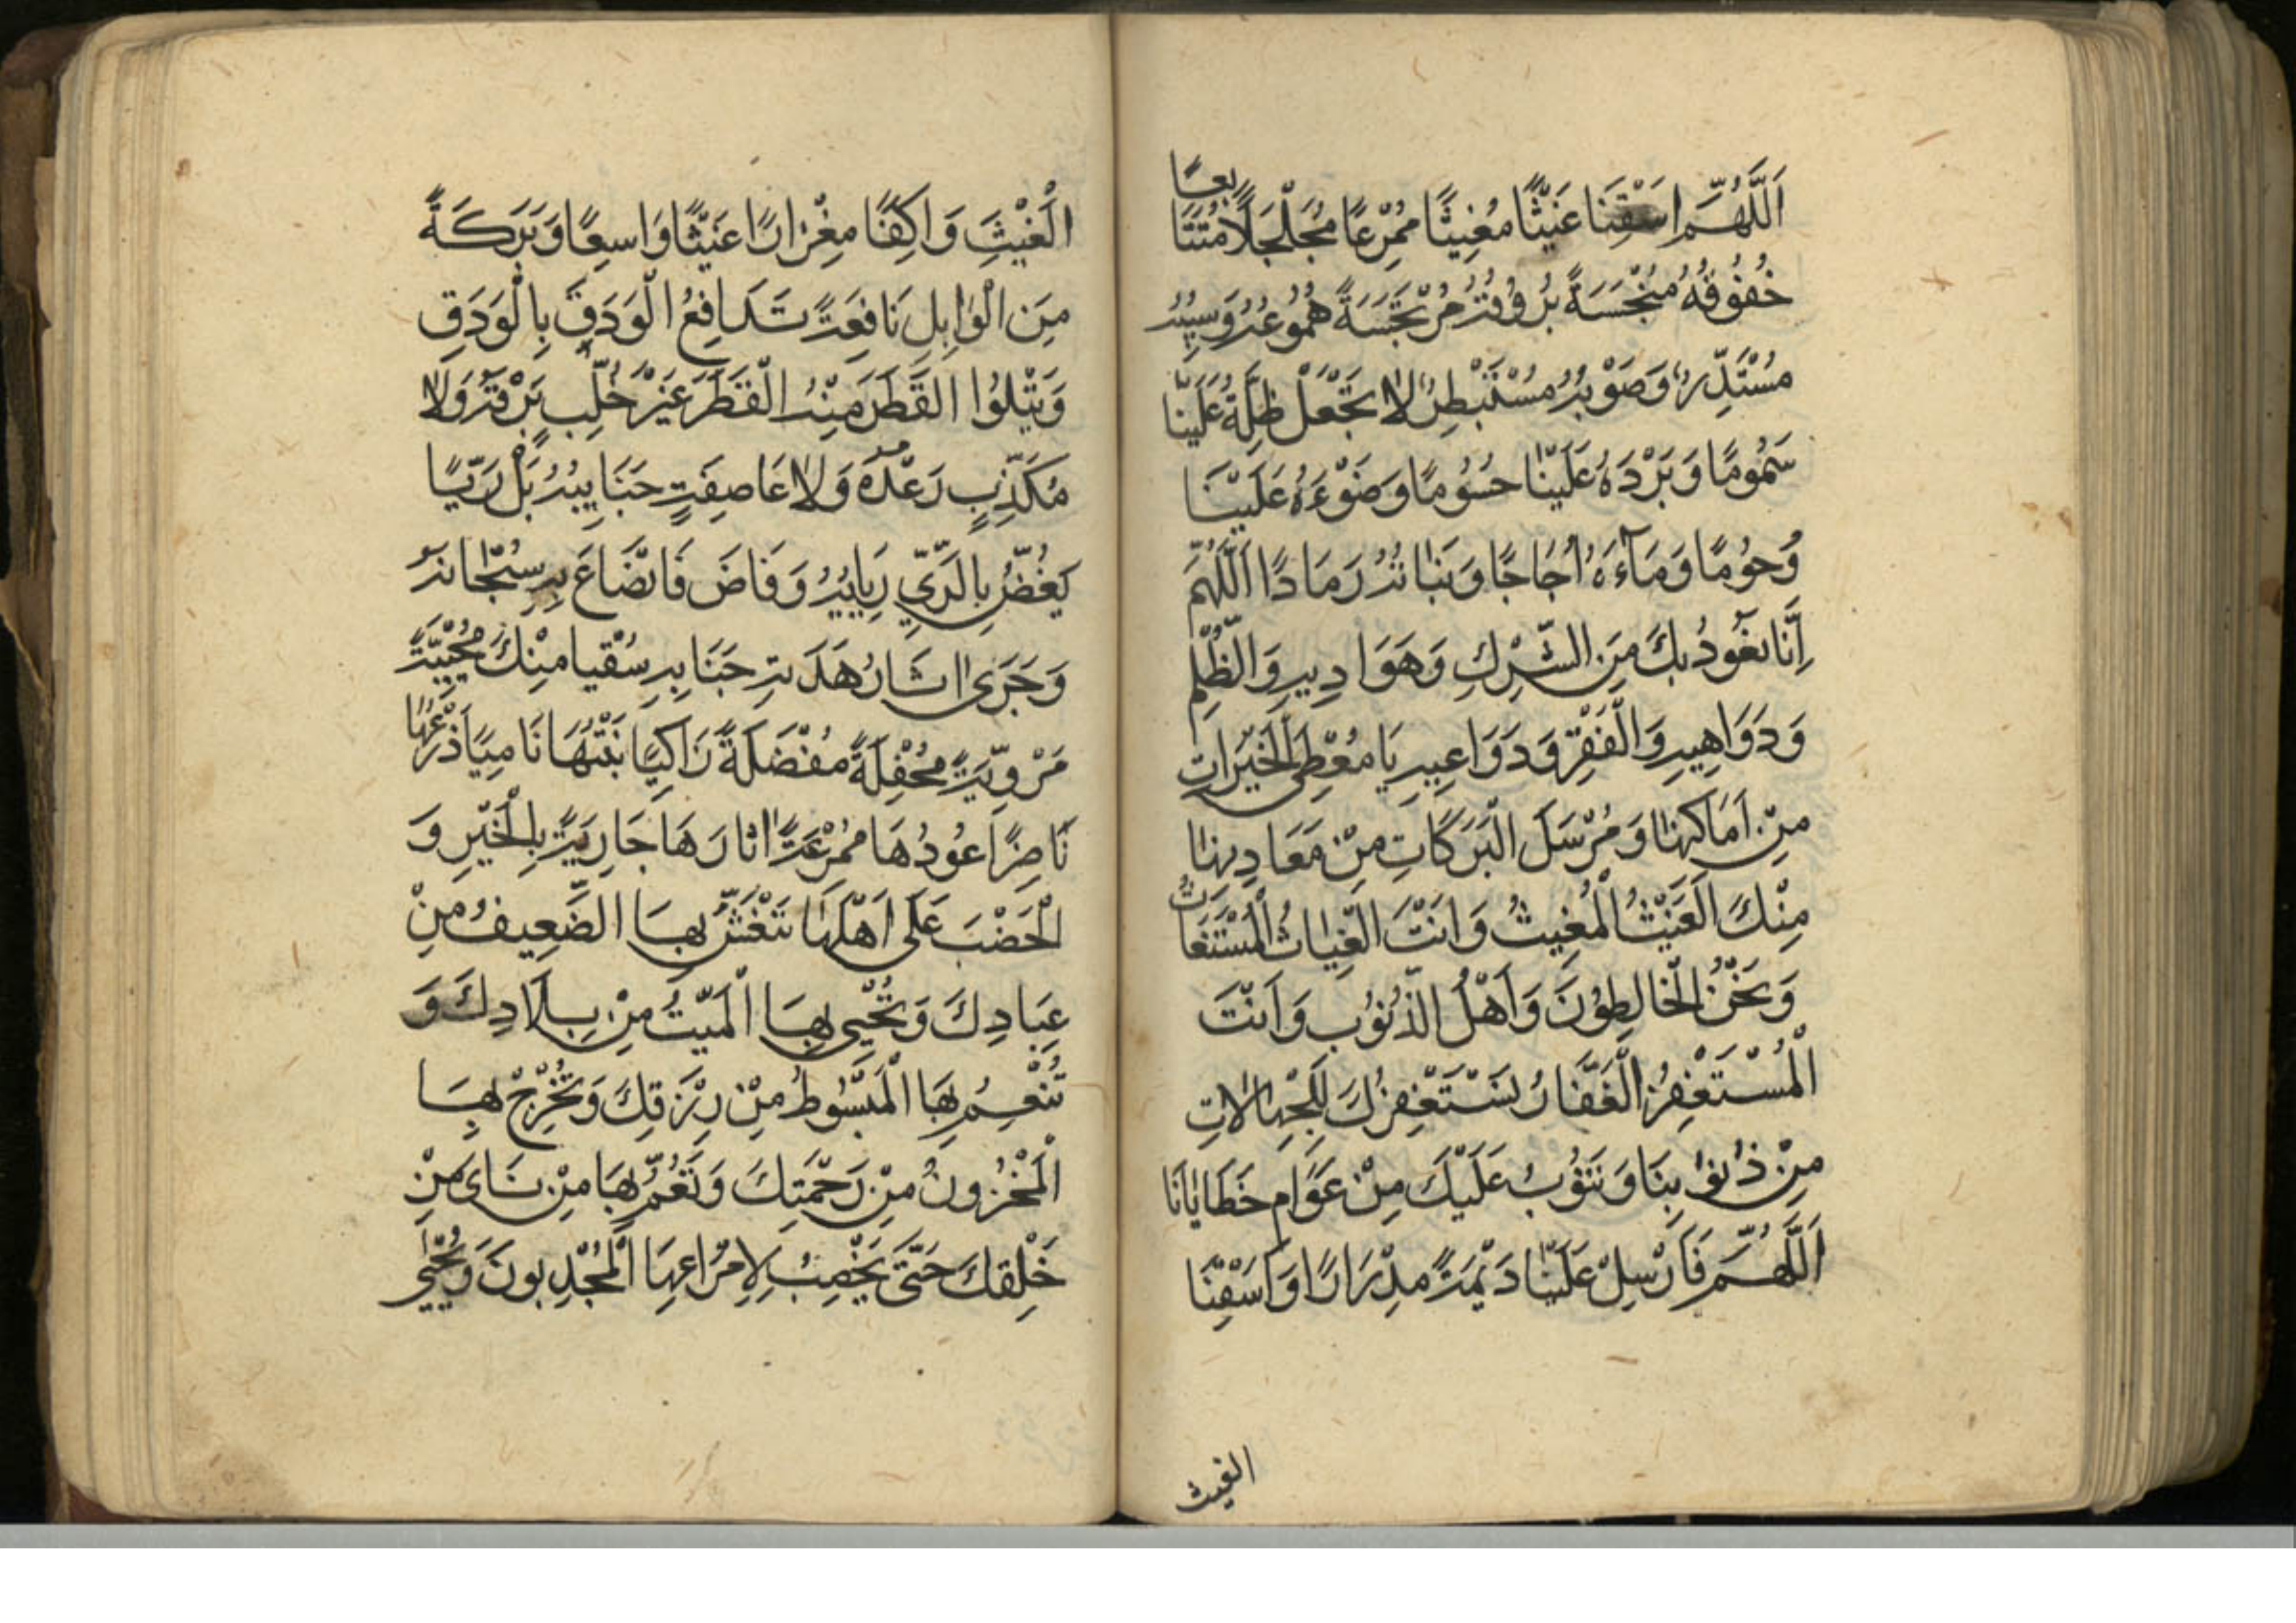 اَللّٰهُمَّ اسْقِنَا غَيْثًا مُغِيثًا مُمْرِعًا مُجَلْجَلًا مُتَتَابِعًا
خُفُوقُهُ مُنْبَجِسَةً بُرُوقُهُ مُرْتَجِسَةً هُمُوعُهُ وَسَيْبُهُ
مُسْتَدِرٌّ وَصَوْبُهُ مُسْتَبْطِرٌ لَا تَجْعَلْ ظِلَّهُ عَلَيْنَا
سَمُومًا وَبَرْدَهُ عَلَيْنَا حُسُومًا وَضَوْءَهُ عَلَيْنَا
رُجُومًا وَمَآءَهُ اُجَاجًا وَنَبَاتَهُ رَمَادًا اَللّٰهُمَّ
اِنَّا نَعُوذُ بِكَ مِنَ الشِّرْكِ وَهَوَادِيهِ وَالظُّلْمِ
وَدَوَاهِيهِ وَالْفَقْرِ وَدَوَاعِيهِ يَا مُعْطِيَ الْخَيْرَاتِ
مِنْ اَمَاكِنِهَا وَمُرْسِلَ الْبَرَكَاتِ مِنْ مَعَادِنِهَا
مِنْكَ الْغَيْثُ الْمُغِيثُ وَاَنْتَ الْغِيَاثُ الْمُسْتَغَاثُ
وَنَحْنُ الْخَاطِئُونَ وَاَهْلُ الذُّنُوبِ وَاَنْتَ
الْمُسْتَغْفَرُ الْغَفَّارُ نَسْتَغْفِرُكَ لِلْجَهَالَاتِ
مِنْ ذُنُوبِنَا وَنَتُوبُ عَلَيْكَ مِنْ عَوَامِ خَطَايَانَا
اَللّٰهُمَّ فَاَرْسِلْ عَلَيْنَا دِيْمَةً مِدْرَارًا وَاَسْقِنَا
الغيث
الْغَيْثَ وَاكِفًا مِغْزَارًا غَيْثًا وَاسِعًا وَبَرَكَةً
مِنَ الْوَابِلِ نَافِعَةً تَدَافِعُ الْوَدَقَ بِالْوَدَقِ
وَيَتْلُوا الْقَطَرَ مِنْهُ الْقَطَرَ غَيْرَ خُلَّبٍ بَرْقُهُ وَلَا
مُكَذَّبٍ رَعْدُهُ وَلَا عَاصِفَةٍ جَنَايِبُهُ بَلْ رَيًّا
يَغُضُّ بِالرَّيِّ رِبَابُهُ وَفَاضَ فَانْصَاعَ بِهِ سَحَابُهُ
وَجَرَى اٰثَارُ هَيْدَبِهِ جَنَابِهِ سُقْيَا مِنْكَ مُحْيِيَةً
مَرْوِيَّةً مُحْفِلَةً مُفْضَلَةً زَاكِيًا نَبْتُهَا نَامِيًا زَرْعُهَا
نَاضِرًا عُودُهَا مُمْرِعَةً اٰثَارُهَا جَارِيَةً بِالْخَيْرِ وَ
الْخَصْبَ عَلَى اَهْلِهَا تَنْعَشُ بِهَا الضَّعِيفُ مِنْ
عِبَادِكَ وَتُحْيِي بِهَا الْمَيِّتُ مِنْ بِلَادِكَ وَ
تُنْعِمُ بِهَا الْمَبْسُوطُ مِنْ رِزْقِكَ وَتُخْرِجُ بِهَا
الْمَخْزُونُ مِنْ رَحْمَتِكَ وَتَعُمَّ بِهَا مِنْ نَاى مِنْ
خَلْقِكَ حَتَّى يَخْصِبَ لِاِمْرَاعِهَا الْمُجْدِبُونَ وَيُحْيٰى